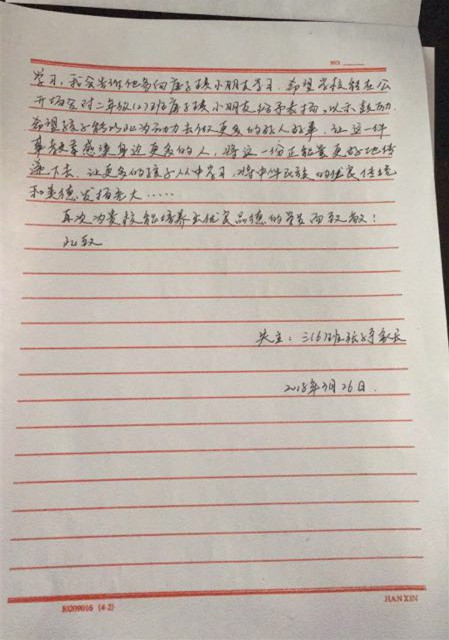 NO.
学习，我会告诉他多向唐子琪小朋友学习．希望学校能在公
开场合对二年级(2)班唐子琪小朋友给予表扬．以示鼓励．
希望孩子能以此为动力去做更多的好人好事．让这一件
事去感染身边更多的人，将这一份正能量更好地传
递下去．让更多的孩子从中学习．将中华民族的优良传统
和美德发扬光大……
再次为贵校能培养出优良品德的学员而致敬！
此致
失主：三(6)班 家长
2018年3月26日．
EQ09016 (4-2)
HANXIN